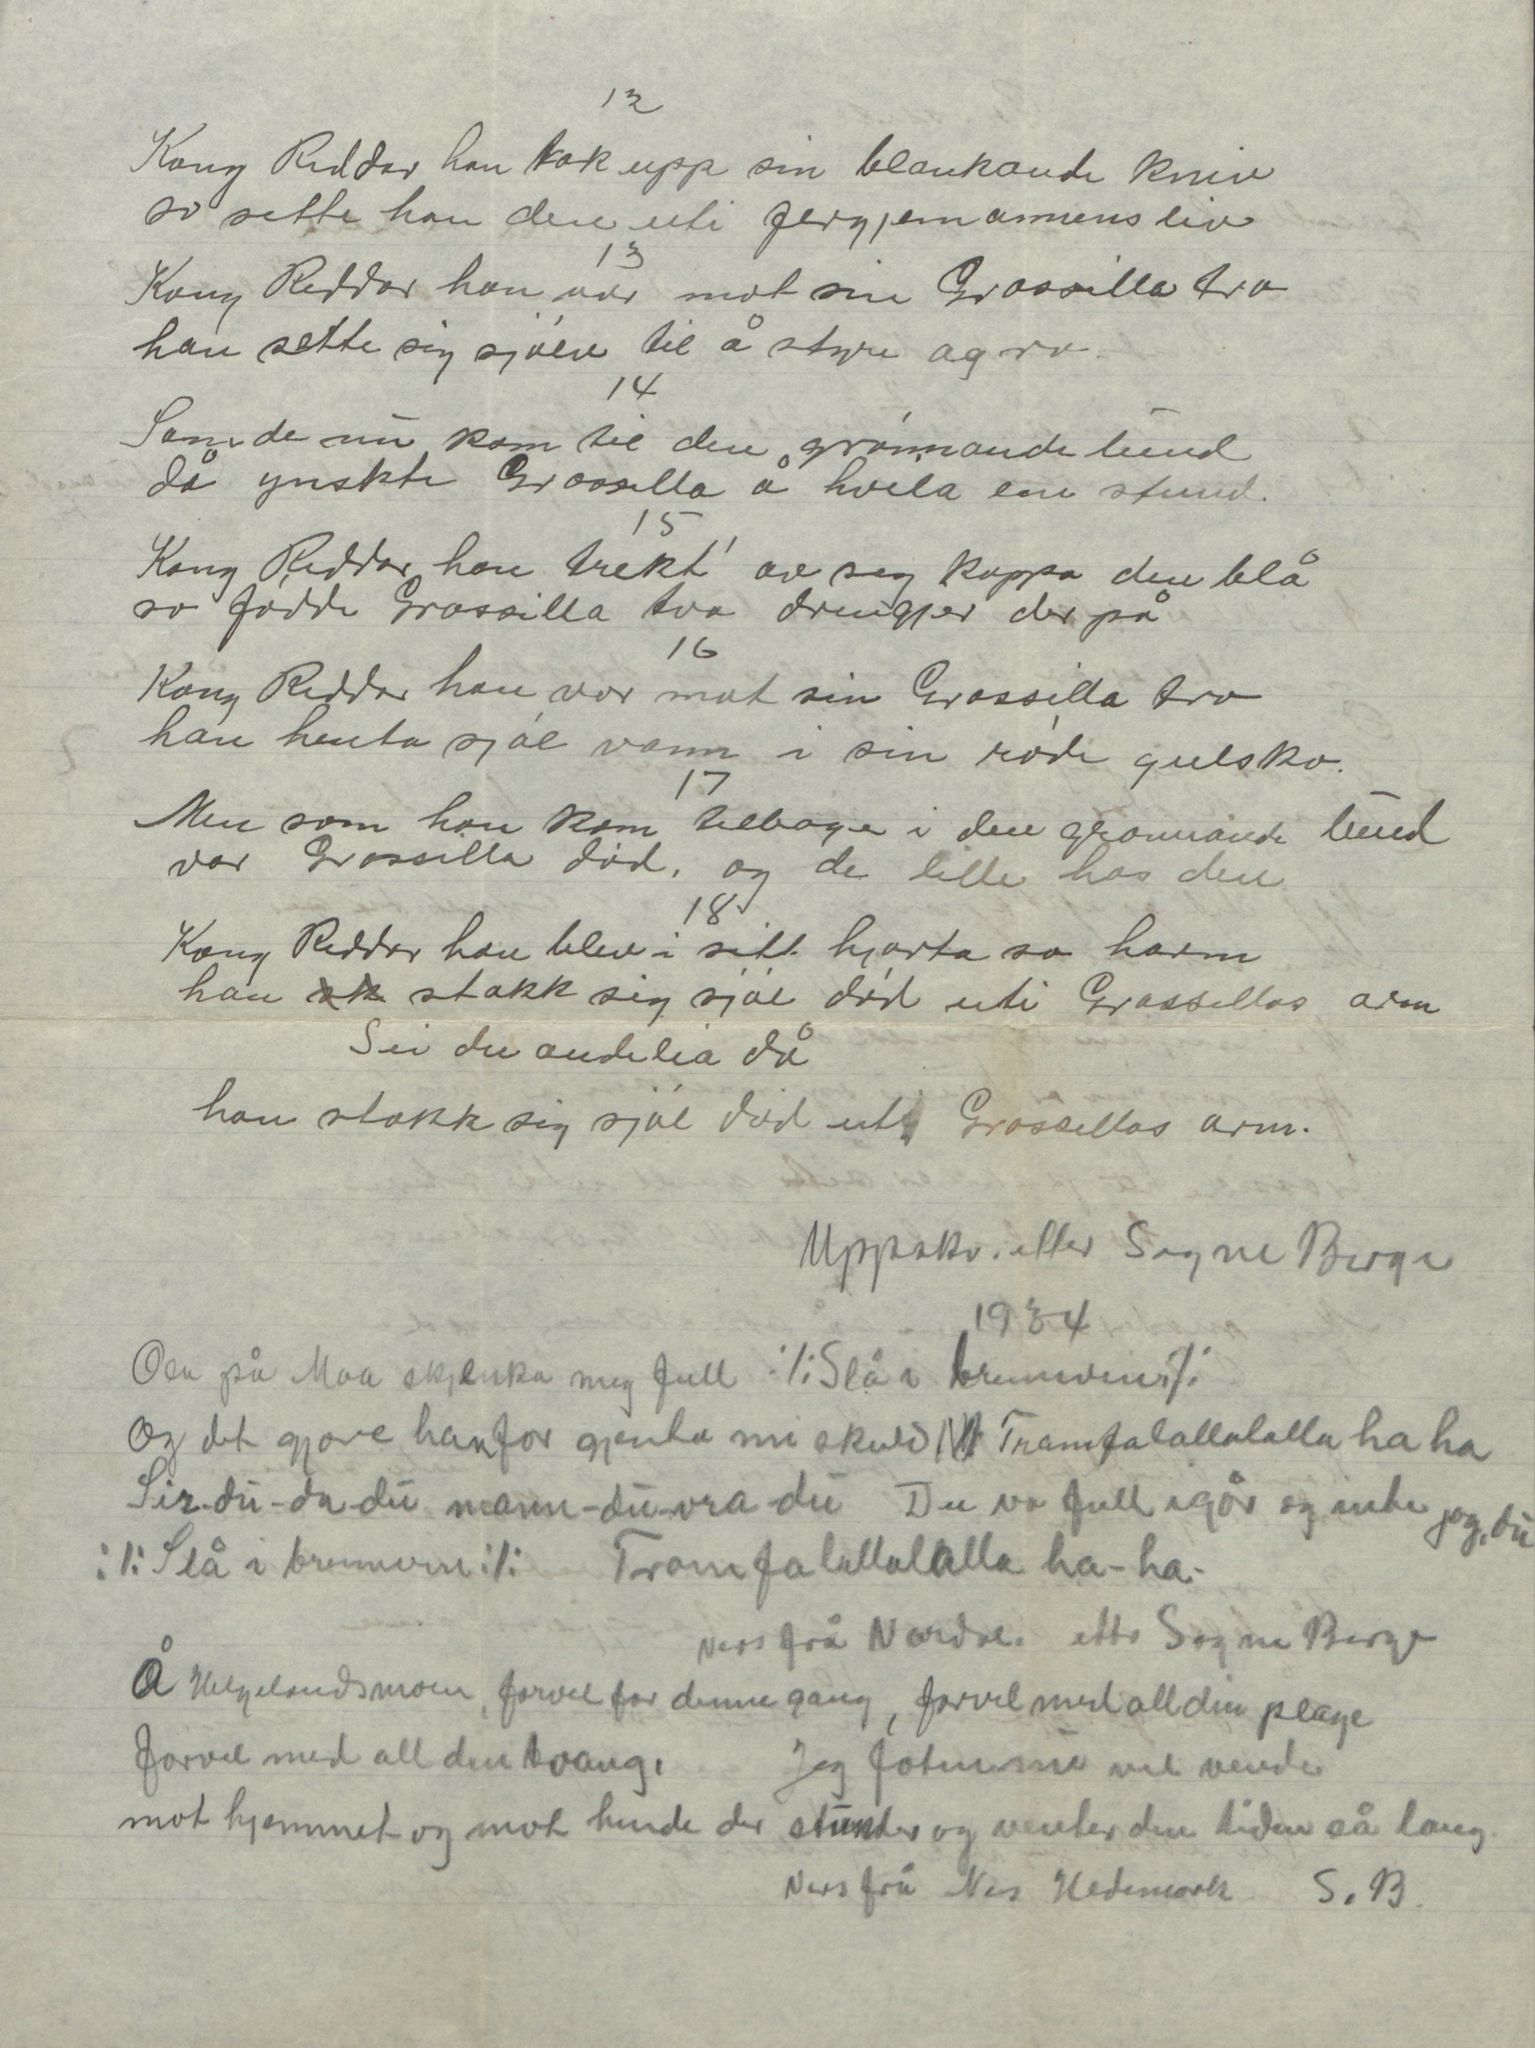 12
Kong Riddar han tok upp sin blankande kniv
so sette han den uti fergjemannens liv
13
Kong Riddar han var mot sin Grassilla tro
han sette sig sjølv til å styre og ro.
14
Som de nu kom til den grønnande lund
då ynskte Grassilla å hvila ein stund.
15
Kong Riddar han trekt' av seg kappa den blå
so fødde Grassilla two drengjer der på
16
Kong Riddar han var mot sin Grassilla tro
han henta sjøl vann i sin røde gulsko.
17
Men som han kom tilbage i den grønnande lund
var Grassilla død, og de lille hos den
18
Kong Riddar han blev i sitt hjarta so harm
han stakk sig sjøl død uti Grassillas arm
Sei du andelia då
han stakk sig sjøl død uti Grassillas arm.
Uppskr. etter Sogne Berge
1934
Ola på Moa skjenka meg full :/: Slå i brennvin :/:
Og det gjore han for gjenta mi skuld Tramfalallalalla ha ha
Sir du-da-du mann-du-vra-du Du va full igår og inte jog, du
:/: Slå i brennvin :/: Tramfalallalalla ha-ha.
Vers frå Nordal. ette Sogne Berge
Å Helgelandsmoen, farvel for denne gang, farvel med all din plage
farvel med all den tvang. Jeg foten nu vil vende
mot hjemmet og mot hende der stunder og venter den tiden så lang
Vers frå Nes Hedemark S. B.